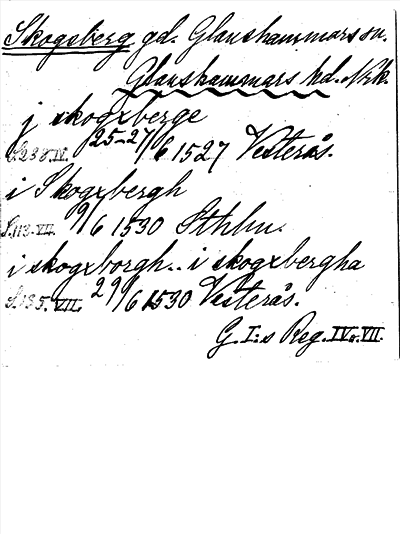 Skogsberg gd. Glanshammars sn.
Glanshammars hd. Nrk.
j skogxberge
S.238.IV. 25-27/6 1527 Vesterås.
i Skogxbergh
S.113.VII. 9/6 1530 Sthlm.
i skogxborgh.. i skogxbergha
S.135.VII. 29/6 1530 Vesterås.
G. I:s Reg. IV o. VII.